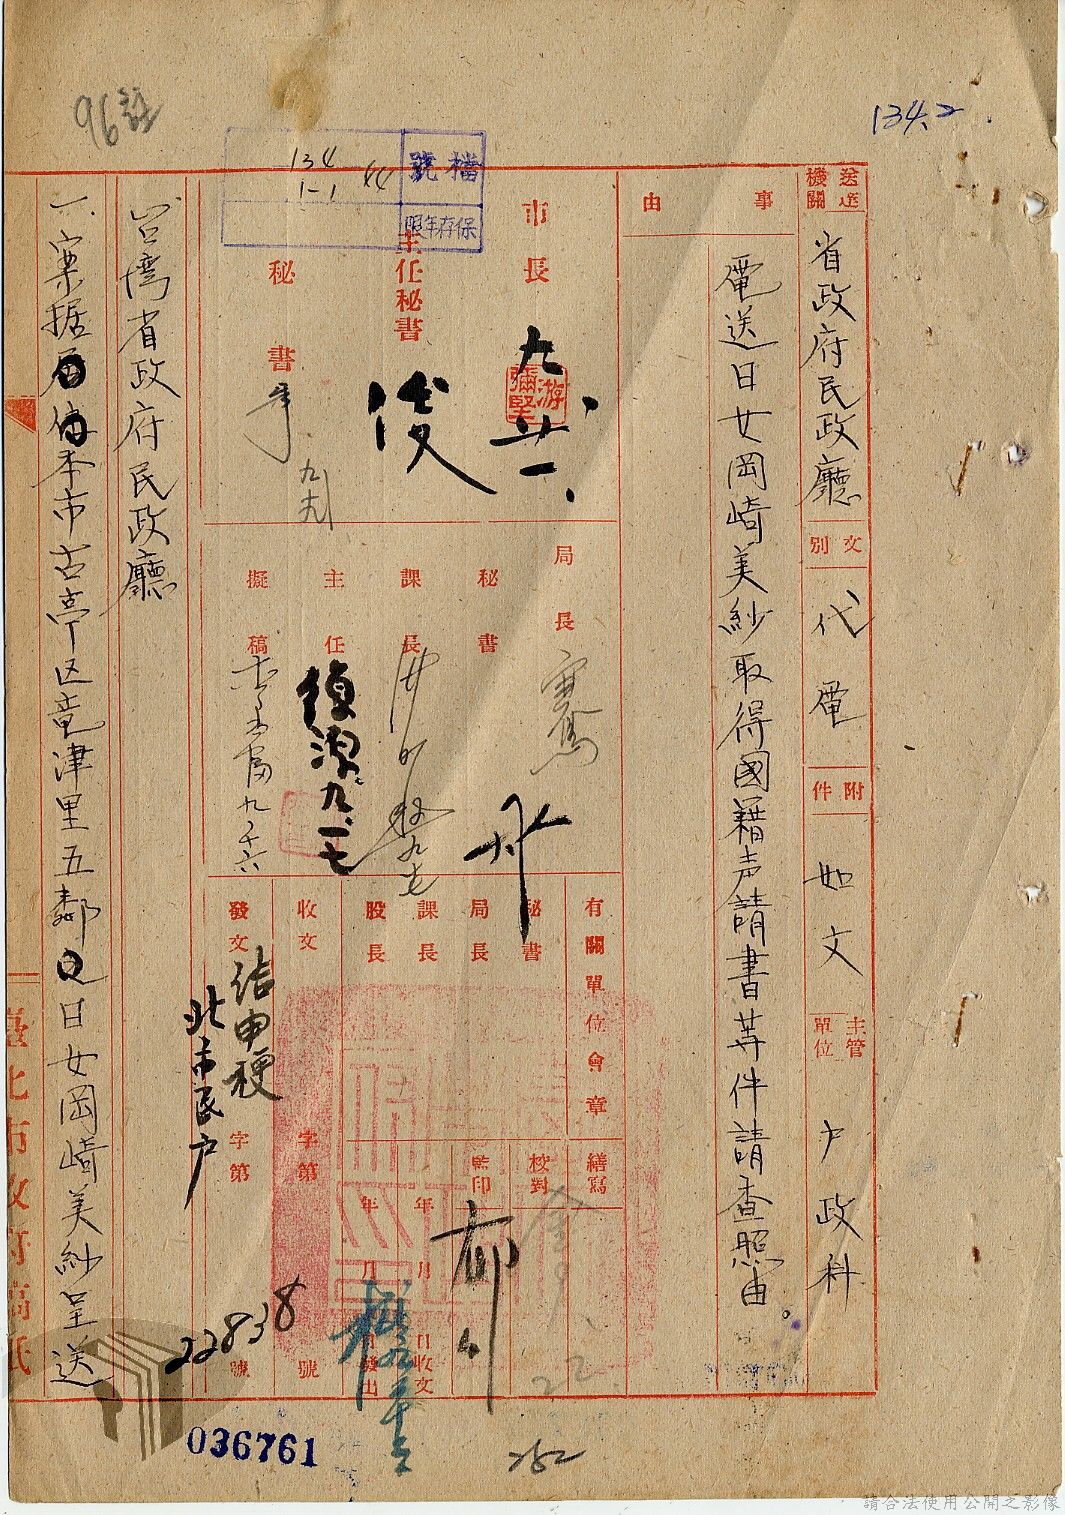 96
134.2
檔號
134
1-1
44
保存年限
送達機關
省政府民政廳
文別
代電
附件
如文
主管單位
户政科
事由
電送日女岡崎美紗取得國籍声請書等件請查照由。
市長
九
廿一、
游彌堅
主任秘書
秘書
九
局長
秘書
課長
主任
九、一七
擬稿
有關單位會章
秘書
局長
課長
股長
繕寫
校對
監印
年月日收文
年月日發出
收文 字第 號
發文 字第 號
申梗
北市民户
22838
台灣省政府民政廳
一、案据本市古亭区竜津里五鄰日女岡崎美紗呈送
臺北市政府稿紙
036761
請合法使用公開之影像